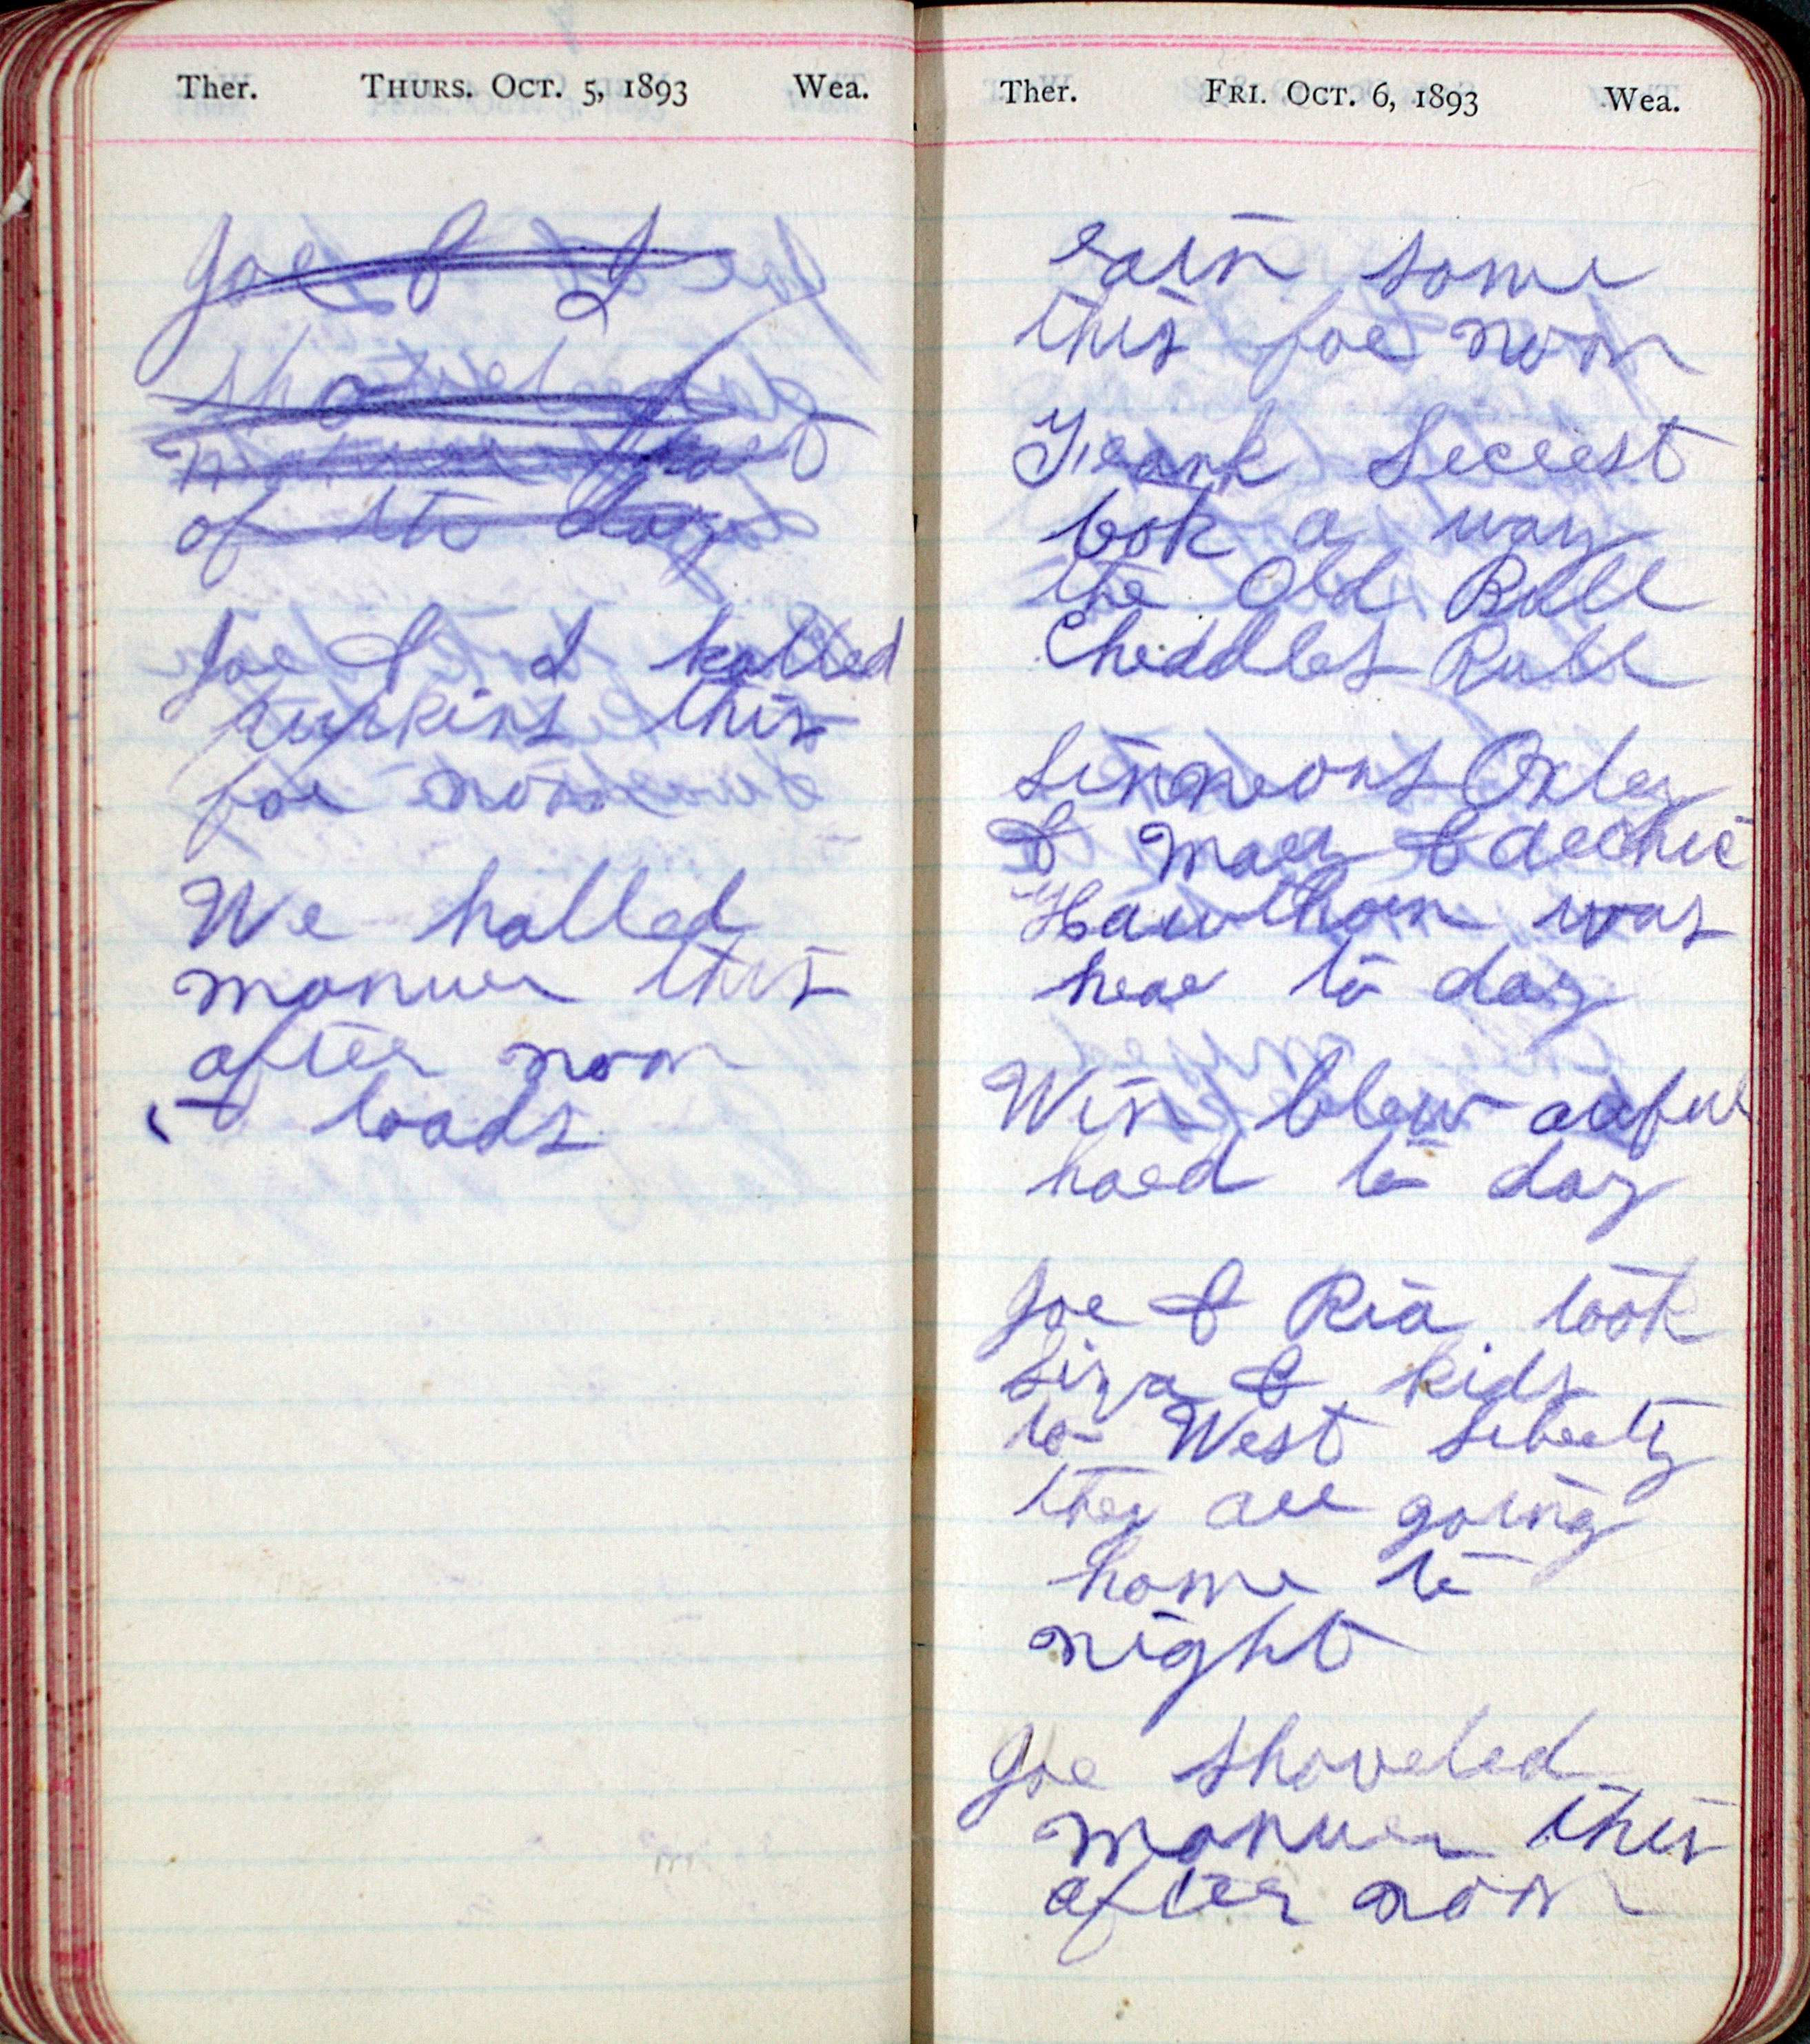 Ther. THURS. OCT. 5, 1893 Wea.
Joe & I
shoveled
manuer part
of the day
Joe & I halled
punkins this
foe noon
We halled
manuer this
after noon
loads
Ther. FRI. OCT. 6, 1893 Wea.
rain some
this foe noon
Frank Secrest
took a way
the Old Bull
Cheddles Bull
Simmons Oxley
& Mary &
Hawthorn was
hear to day
Win blew awful
hard to day
Joe & Ria took
Liza & kids
to West Liberty
they are going
home to
night
Joe shoveled
manuer this
after noon